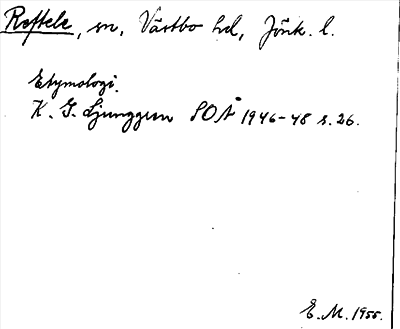 Reftele, sn, Västbo hd, Jönk. l.
Etymologi.
K. G. Ljunggren SOÅ 1946-48 s. 26.
E. M. 1955.